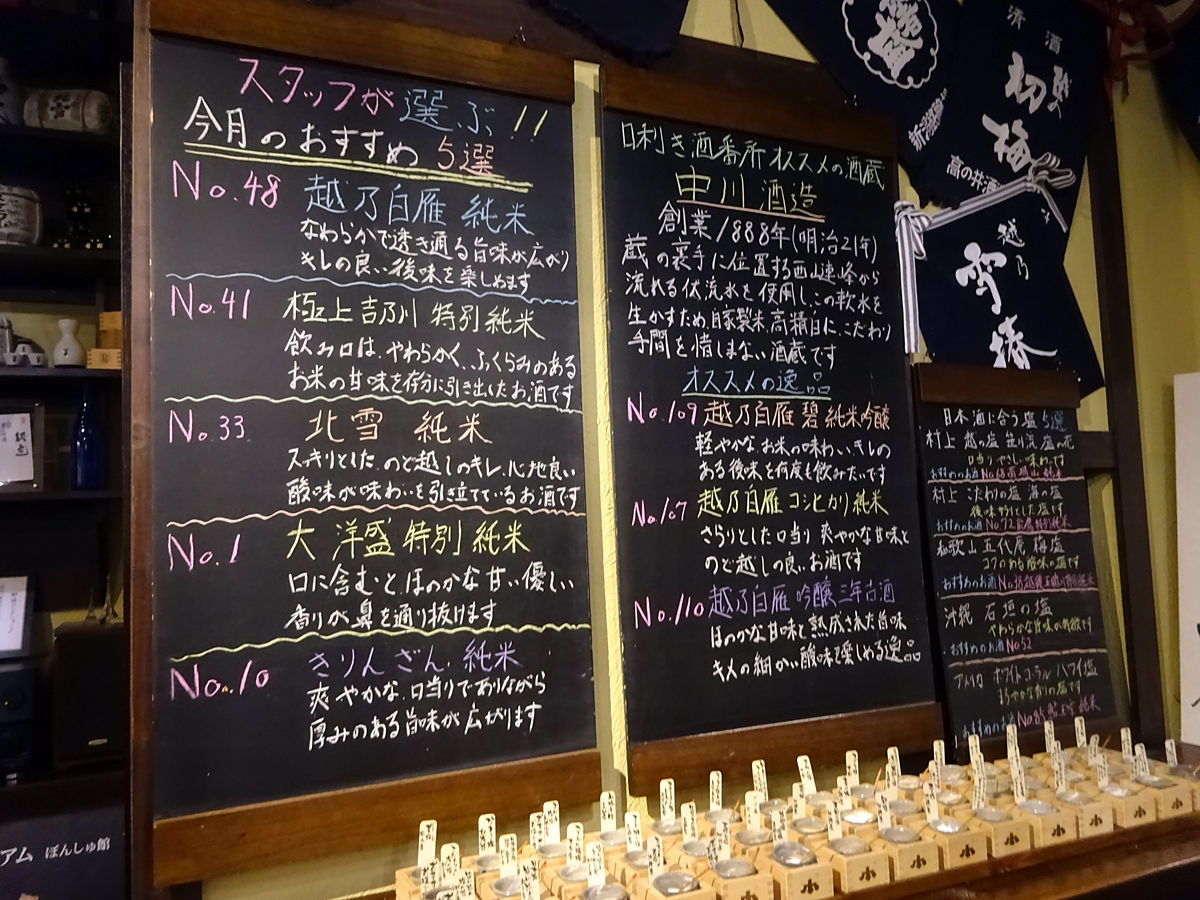 スタッフが選ぶ!!
今月のおすすめ 5選
No.48 越乃白雁 純米
なめらかで透き通る旨味が広がり
キレの良い後味を楽しめます
No.41 極上吉乃川 特別純米
飲み口は、やわらかく、ふくらみのある
お米の甘味を存分に引き出したお酒です
No.33 北雪 純米
スッキリとした、のど越しのキレ、心地良い
酸味が味わいを引き立てているお酒です
No.1 大洋盛 特別 純米
口に含むと、ほのかな甘い優しい
香りが鼻を通り抜けます
No.10 きりんざん 純米
爽やかな口当りでありながら
厚みのある旨味が広がります
口利き酒番所オススメの酒蔵
中川酒造
創業1888年(明治21年)
蔵の裏手に位置する西山連峰から
流れる伏流水を使用し、この軟水を
生かすため、自家製米、高精白にこだわり
手間を惜しまない酒蔵です
オススメの逸品
No.109 越乃白雁 碧 純米吟醸
軽やかなお米の味わい、キレの
ある後味を何度も飲みたいです
No.107 越乃白雁 コシヒカリ純米
さらりとした口当り 爽やかな甘味と
のど越しの良いお酒です
No.110 越乃白雁 吟醸 三年古酒
ほのかな甘味と熟成された旨味
キメの細かい酸味を楽しめる逸品
日本酒に合う塩 5選
村上 越の塩 笹川流 塩の花
口当りやさしい味わいです
おすすめのお酒 No.68
村上 こだわりの塩 海の塩
後味すっとした塩です
おすすめのお酒 No.72 特別純米
和歌山 五代庵 梅塩
コクのある酸味の塩です
おすすめのお酒 特別純米
沖縄 石垣の塩
やわらかな旨味が特徴です
おすすめのお酒 No.52
アメリカ ホワイトコーラル ハワイ塩
まろやかな香りの塩です
おすすめのお酒 No.85 純米
清酒
初梅
高の井酒
越乃
雪椿
アム ぽんしゅ館
小
小
小
小
小
小
小
小
小